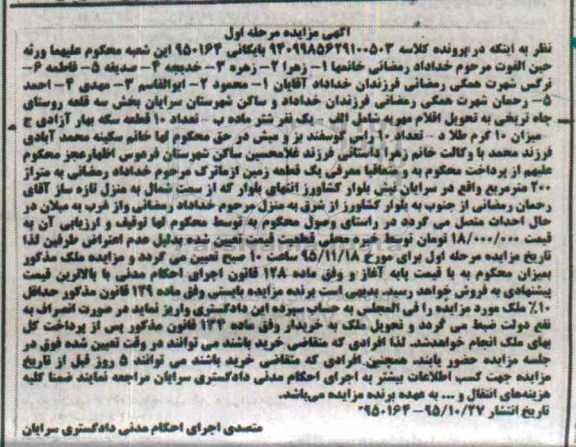 آگهی مزایده مرحله اول
نظر به اینکه در پرونده کلاسه ۹۴۰۹۹۸۵۶۲۹۱۰۰۵۰۳ بایگانی ۹۵۰۱۶۴ این شعبه محکوم علیهما ورثه
حین الفوت مرحوم خداداد رمضانی خانمها ۱- زهرا ۲- زهره ۳- خدیجه ۴- صدیقه ۵- فاطمه ۶-
نرگس شهرت همگی رمضانی فرزندان خداداد آقایان ۱- محمود ۲- ابوالقاسم ۳- مهدی ۴- احمد
۵- رحمان شهرت همگی رمضانی فرزندان خداداد و ساکن شهرستان سرایان بخش سه قلعه روستای
چاه تریخی به تحویل اقلام مهریه شامل الف - یک نفر شتر ماده ب - تعداد ۱۰ قطعه سکه بهار آزادی ج
- میزان ۱۰ گرم طلا د - تعداد ۱۰ راس گوسفند بز و میش در حق محکوم لها خانم سکینه محمد آبادی
فرزند محمد با وکالت خانم زهرا داستانی فرزند غلامحسین ساکن شهرستان فردوس اظهار عجز محکوم
علیهم از پرداخت محکوم به و متعاقبا معرفی یک قطعه زمین از ماترک مرحوم خداداد رمضانی به متراژ
۲۰۰ مترمربع واقع در سرایان نبش بلوار کشاورز انتهای بلوار که از سمت شمال به منزل تازه ساز آقای
رحمان رمضانی از جنوب به بلوار کشاورز از شرق به منزل مرحوم خداداد رمضانی و از غرب به میلان در
حال احداث متصل می گردد در راستای وصول محکوم به توسط محکوم لها توقیف و ارزیابی آن به
قیمت ۱۸/۰۰۰/۰۰۰ تومان توسط خبره محلی قطعیت قیمت تعیین شده بدلیل عدم اعتراض طرفین لذا
تاریخ مزایده مرحله اول برای مورخ ۹۵/۱۱/۱۸ ساعت ۱۰ صبح تعیین می گردد و مزایده ملک مذکور
بمیزان محکوم به یا قیمت پایه آغاز و وفق ماده ۱۲۸ قانون اجرای احکام مدنی با بالاترین قیمت
پیشنهادی به فروش خواهد رسید. بدیهی است برنده مزایده بایستی وفق ماده ۱۲۹ قانون مذکور حداقل
۱۰٪ ملک مورد مزایده را فی المجلس به حساب سپرده این دادگستری واریز نماید در صورت انصراف به
نفع دولت ضبط می گردد و تحویل ملک به خریدار وفق ماده ۱۳۴ قانون مذکور پس از پرداخت کل
بهای ملک انجام خواهد شد. لذا افرادی که متقاضی خرید باشند می توانند در وقت تعیین شده فوق در
جلسه مزایده حضور یابند. همچنین افرادی که متقاضی خرید باشند می توانند ۵ روز قبل از تاریخ
مزایده جهت کسب اطلاعات بیشتر به اجرای احکام مدنی دادگستری سرایان مراجعه نمایند ضمنا کلیه
هزینه‌های انتقال و ... به عهده برنده مزایده می‌باشد.
تاریخ انتشار ۹۵/۱۰/۲۷- ۹۵۰۱۶۴
متصدی اجرای احکام مدنی دادگستری سرایان